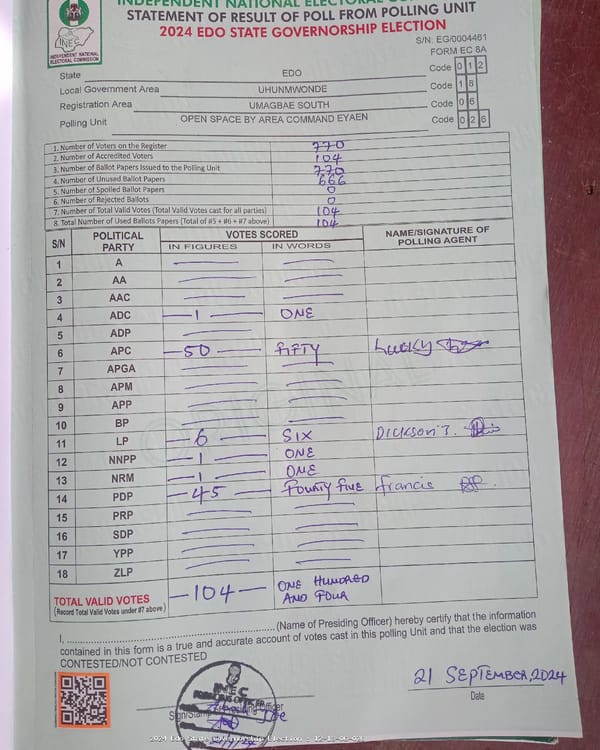 INDEPENDENT NATIONAL ELECTORAL
STATEMENT OF RESULT OF POLL FROM POLLING UNIT
2024 EDO STATE GOVERNORSHIP ELECTION
INEC
INDEPENDENT NATIONAL
ELECTORAL COMMISSION
S/N: EG/0004461
FORM EC 8A
State EDO Code 0 1 2
Local Government Area UHUNMWONDE Code 1 8
Registration Area UMAGBAE SOUTH Code 0 6
Polling Unit OPEN SPACE BY AREA COMMAND EYAEN Code 0 2 6
1. Number of Voters on the Register 770
2. Number of Accredited Voters 104
3. Number of Ballot Papers Issued to the Polling Unit 770
4. Number of Unused Ballot Papers 666
5. Number of Spoiled Ballot Papers 0
6. Number of Rejected Ballots 0
7. Number of Total Valid Votes (Total Valid Votes cast for all parties) 104
8. Total Number of Used Ballots Papers (Total of #5 + #6 + #7 above) 104
S/N POLITICAL PARTY VOTES SCORED NAME/SIGNATURE OF POLLING AGENT
IN FIGURES IN WORDS
1 A
2 AA
3 AAC
4 ADC 1 ONE
5 ADP
6 APC 50 FIFTY Lucky
7 APGA
8 APM
9 APP
10 BP
11 LP 6 SIX DICKSON T.
12 NNPP 1 ONE
13 NRM 1 ONE
14 PDP 45 FOURTY FIVE Francis
15 PRP
16 SDP
17 YPP
18 ZLP
TOTAL VALID VOTES 104 ONE HUNDRED AND FOUR
(Record Total Valid Votes under #7 above)
I, (Name of Presiding Officer) hereby certify that the information
contained in this form is a true and accurate account of votes cast in this polling Unit and that the election was
CONTESTED/NOT CONTESTED
INEC
21 SEPTEMBER, 2024
Date
Sign/Stamp
2024 Edo State Governorship Election